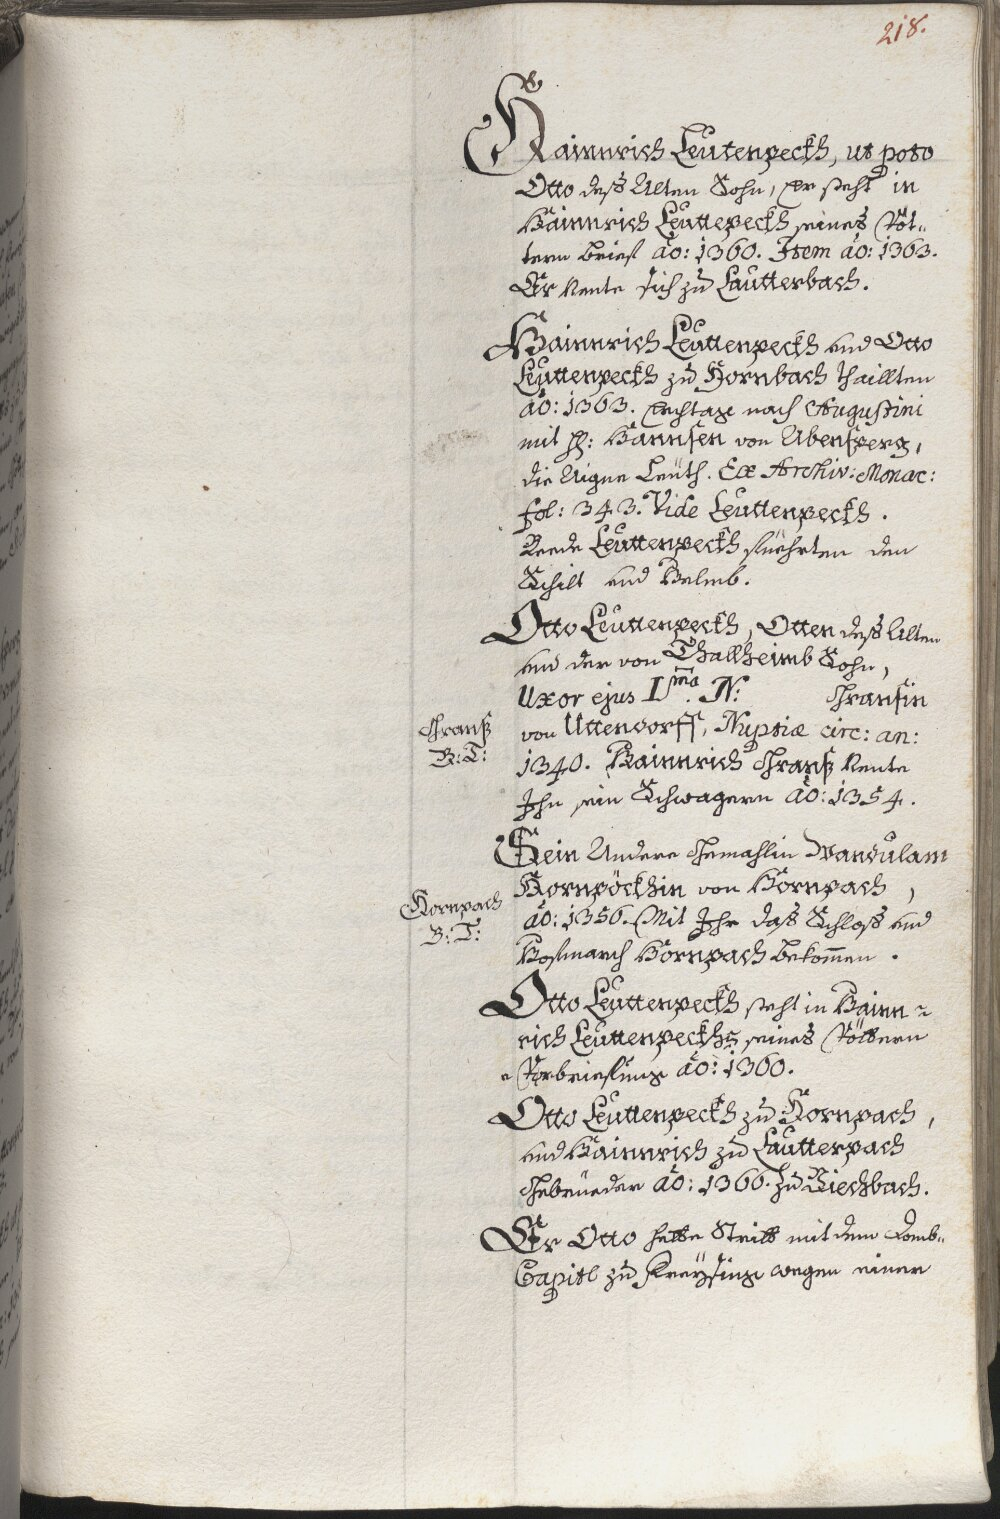 218.
Hainnrich Leutenpeckh, ut puto
Otto deß Alten Sohn, Er steht in
Hainnrich Leuttepeckh seines Vöt-
tern brief aō: 1360. Item aō: 1363.
Er Nente sich zu Lautterbach.
Hainnrich Leuttenpeckh und Otto
Leuttenpeckh zu Hornbach thaillten
aō: 1363. Erchtag nach Augustini
mit H: Hannsen von Abensperg,
die Aigne Leüth. Ex Archiv: Monac:
fol: 343. Vide Leuttenpeckh.
Beede Leuttenpeckh fuehrten den
Schilt und Helmb.
Otto Leuttenpeckh, Otten deß Alten
und der von Thallheimb Sohn,
Uxor ejus I.ma N: Gransin
von Uttendorff, Nuptiæ circ: an:
Granß
B: T:
1340. Hainnrich Granß Nente
Ihn sein Schwagern aō: 1354.
Sein Andere Gemahlin Wandulam
Hornpöckhin von Hornpach,
Hornpach
B: T:
aō: 1356. Mit Ihr daß Schloß und
Hofmarch Hornpach bekom̄en.
Otto Leuttenpeckh steht in Hainn-
rich Leuttenpeckhs seines Vöttern
Verbriefung aō: 1360.
Otto Leuttenpeckh zu Hornpach,
und Hainnrich zu Lautterpach
Gebrüeder aō: 1360. zu Biechbach.
Er Otto hette Stritt mit dem Domb-
Capitl zu Freÿsing wegen einer